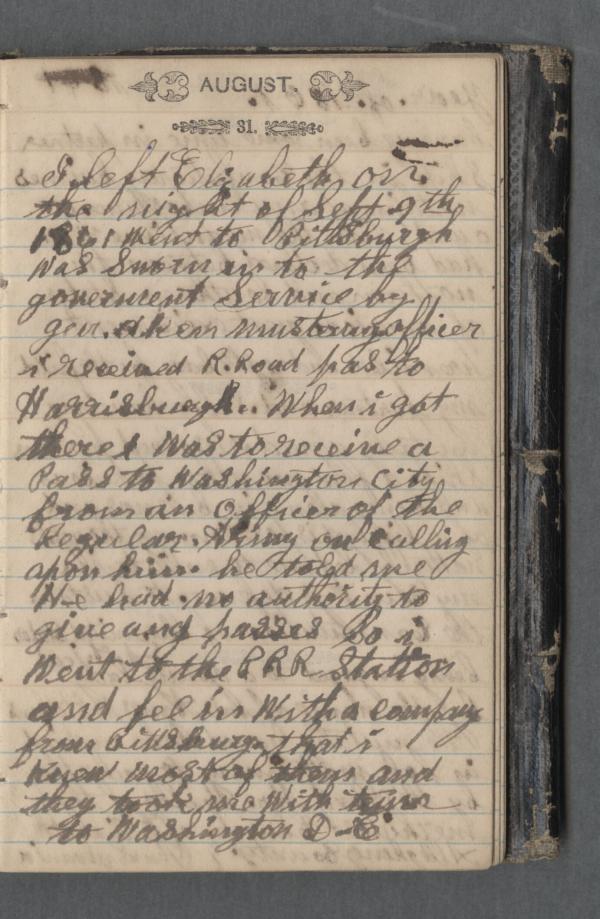 AUGUST.
31.
I left Elizabeth on
the night of Sept 9th
1861 Went to Pittsburgh
Was Sworn in to the
government Service by
gen. mustering officer
i received R. Road pas to
Harrisburgh. When i got
there i Was to receive a
Pass to Washington City
from an Officer of the
Regular. Army on Calling
apon him. he told me
He had no authority to
give any passes So i
Went to the P R R Station
and fel in With a company
from Pittsburg that i
Knew most of them and
they took me With
to Washington D. C.